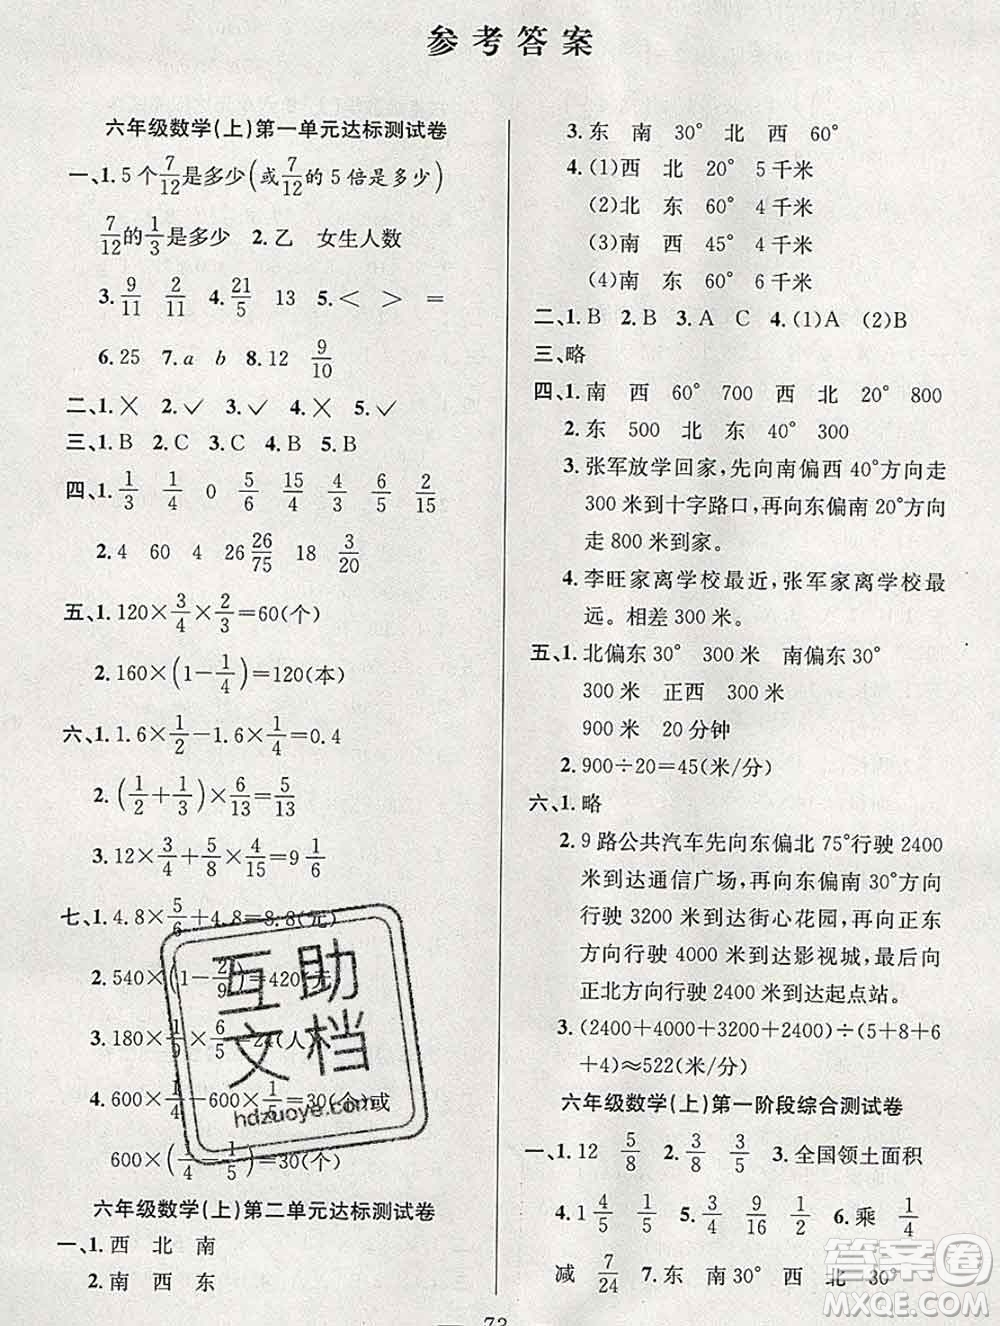 参考答案
六年级数学(上)第一单元达标测试卷
一、1. 5 个7/12是多少(或7/12的 5 倍是多少)
7/12的1/3是多少 2. 乙 女生人数
3. 9/11 2/11 4. 21/5 13 5. < > =
6. 25 7. a b 8. 12 9/10
二、1. ✕ 2. ✓ 3. ✓ 4. ✕ 5. ✓
三、1. B 2. C 3. C 4. B 5. B
四、1. 1/3 1/4 0 5/6 15/4 4/15 6/5 2/15
2. 4 60 4 26 26/75 18 3/20
五、1. 120×3/4×2/3=60(个)
2. 160×(1-1/4)=120(本)
六、1. 1.6×1/2-1.6×1/4=0.4
2. (1/2+1/3)×6/13=5/13
3. 12×3/4+5/8×4/15=9 1/6
七、1. 4.8×5/6+4.8=8.8(元)
2. 540×(1-2/9)=420(元)
3. 180×1/9×6/5=24(人)
4. 600×1/4-600×1/5=30(个)或
600×(1/4-1/5)=30(个)
六年级数学(上)第二单元达标测试卷
一、1. 西 北 南
2. 南 西 东
3. 东 南 30° 北 西 60°
4. (1)西 北 20° 5 千米
(2)北 东 60° 4 千米
(3)南 西 45° 4 千米
(4)南 东 60° 6 千米
二、1. B 2. B 3. A C 4. (1)A (2)B
三、略
四、1. 南 西 60° 700 西 北 20° 800
2. 东 500 北 东 40° 300
3. 张军放学回家，先向南偏西 40°方向走
300 米到十字路口，再向东偏南 20°方向
走 800 米到家。
4. 李旺家离学校最近，张军家离学校最
远。相差 300 米。
五、1. 北偏东 30° 300 米 南偏东 30°
300 米 正西 300 米
900 米 20 分钟
2. 900÷20=45(米/分)
六、1. 略
2. 9 路公共汽车先向东偏北 75°行驶 2400
米到达通信广场，再向东偏南 30°方向
行驶 3200 米到达街心花园，再向正东
方向行驶 4000 米到达影视城，最后向
正北方向行驶 2400 米到达起点站。
3. (2400+4000+3200+2400)÷(5+8+6
+4)≈522(米/分)
六年级数学(上)第一阶段综合测试卷
一、1. 12 5/8 2. 3/8 3/8 3. 全国领土面积
4. 1 4/5 5/4 5. 3/4 9/16 6. 乘 1/4
减 7/24 7. 东 南 30° 西 北 30°
73
互助文档
hdzuoye.com
答案圈
MXQE.COM